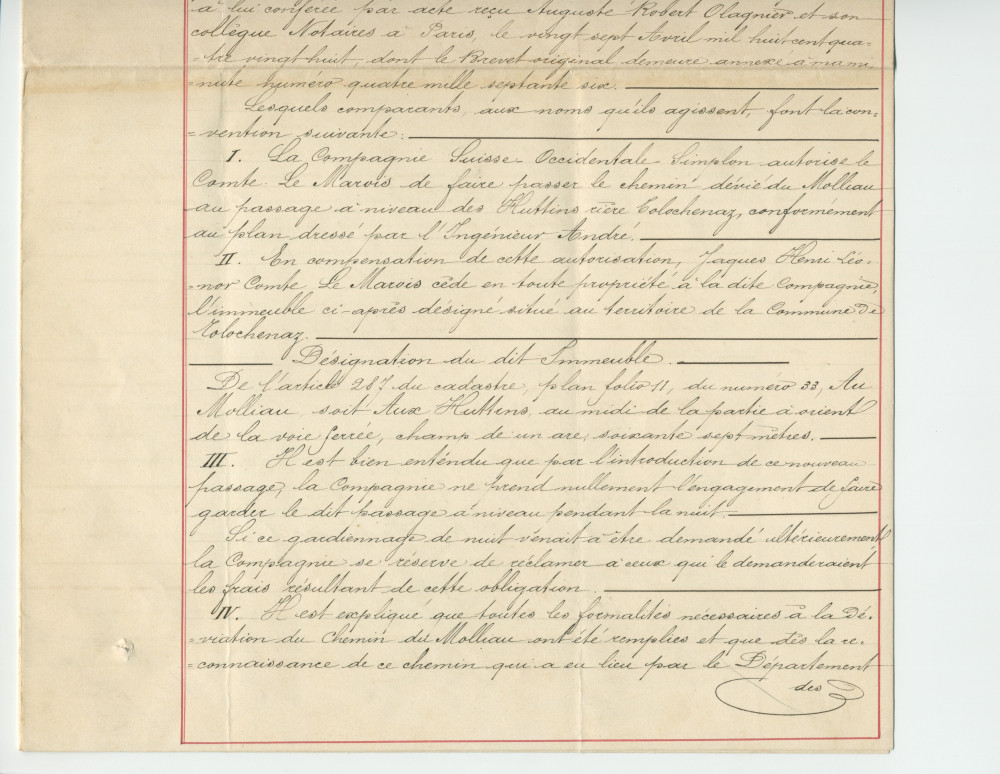 à lui conférée par acte reçu Auguste Robert Olagnier et son
collègue Notaires à Paris, le vingt sept Avril mil huit cent qua-
=tre vingt huit, dont le Brevet original demeure annexé à ma mi-
=nute numéro quatre mille septante six.
Lesquels comparants, aux noms qu'ils agissent, font la con-
=vention suivante:
I. La Compagnie Suisse-Occidentale Simplon autorise le
Comte Le Marois de faire passer le chemin dévié du Molliau
au passage à niveau des Huttins rière Tolochenaz, conformément
au plan dressé par l'Ingénieur André.
II. En compensation de cette autorisation, Jaques Henri Léo-
=nor Comte Le Marois cède en toute propriété à la dite Compagnie,
l'immeuble ci-après désigné situé au territoire de la Commune de
Tolochenaz.
Désignation du dit Immeuble.
De l'article 287 du cadastre, plan folio 11, du numéro 33, Au
Molliau soit Aux Huttins, au midi de la partie à orient
de la voie ferrée, champ de un are, soixante sept mètres.
III. Il est bien entendu que par l'introduction de ce nouveau
passage, la Compagnie ne prend nullement l'engagement de faire
garder le dit passage à niveau pendant la nuit.
Si ce gardiennage de nuit venait à être demandé ultérieurement
la Compagnie se réserve de réclamer à ceux qui le demanderaient
les frais résultant de cette obligation.
IV. Il est expliqué que toutes les formalités nécessaires à la Dé-
=viation du Chemin du Molliau ont été remplies et que dès la re-
=connaissance de ce chemin qui a eu lieu par le Département
des